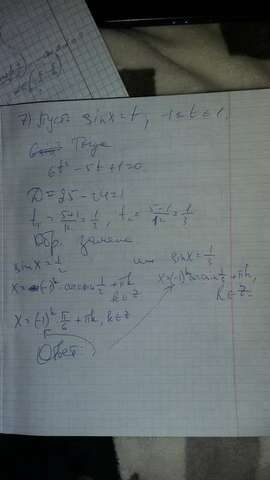 7) Пусть sinx=t, -1≤t≤1.
Тогда
6t²-5t+1=0
D=25-24=1
t₁=5+1/12=1/3, t₂=5-1/12=1/3
Обр. замена
sinx=1/2 или sinx=1/3
x=(-1)ᵏ·arcsin 1/2+πk, k∈Z x=(-1)ᵏ arcsin 1/3+πk, k∈Z.
x=(-1)ᵏ π/6+πk, k∈Z
Ответ